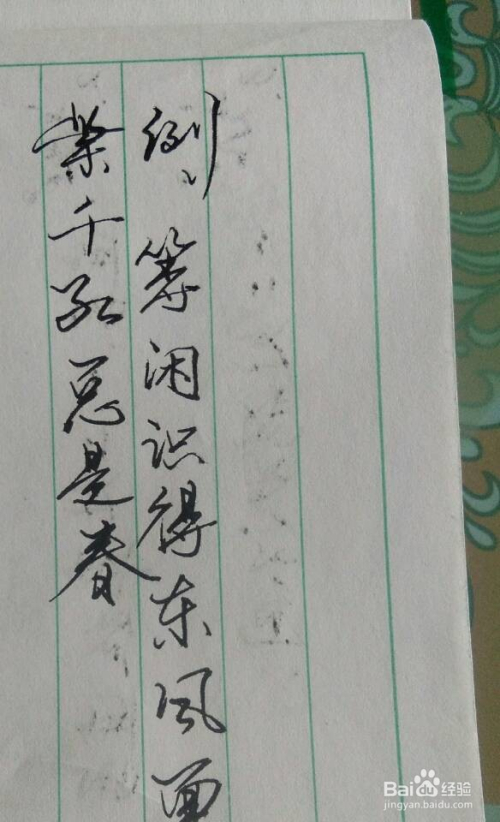 例：等闲识得东风面
紫千红总是春
Baidu经验
jingyan.baidu.com